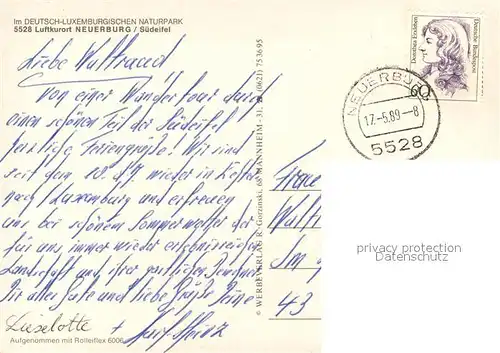 Im DEUTSCH-LUXEMBURGISCHEN NATURPARK
5528 Luftkurort NEUERBURG / Südeifel
Liebe Waltraud
Von einer Wandertour durch
einen schönen Teil der Südeifel
herzliche Feriengrüße. Wir sind
seit dem 10. d. M. wieder in
nach Luxemburg und erfreuen
uns bei schönem Sommerwetter der
für uns immer wieder erlebnisreichen
Landschaft und ihrer gastlichen Bewohner
Dir alles Gute und liebe Grüße Deine
Lieselotte + Karl-Heinz
Aufgenommen mit Rolleiflex 6006
© WERBEVERLAG R. Gorzinski, 68 MANNHEIM-31, ☎ (0621) 753695
Dorothea Erxleben
Deutsche Bundespost
60
NEUERBURG
17.-5.89-8
5528
Frau
Im
43
privacy protection
Datenschutz